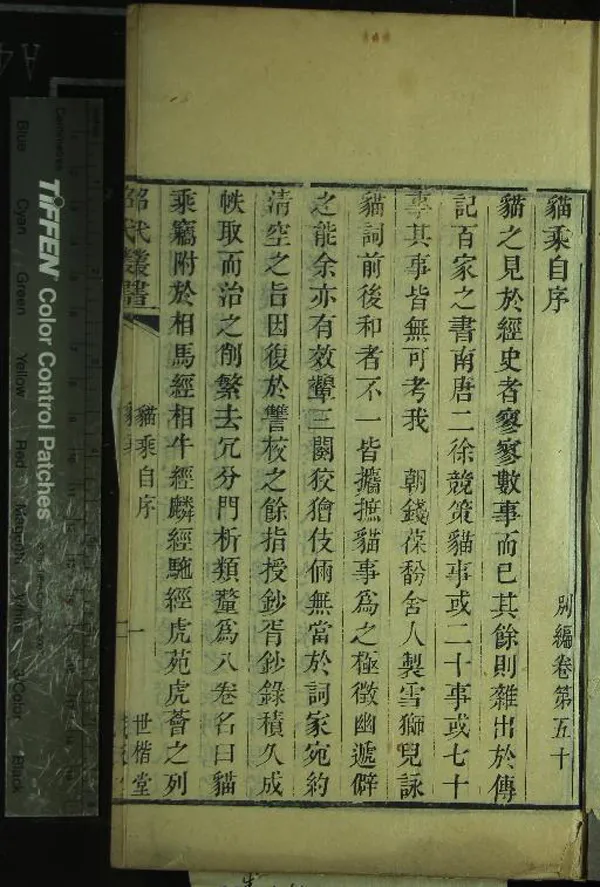 貓乘自序
別編卷第五十
貓之見於經史者寥寥數事而已其餘則雜出於傳
記百家之書南唐二徐競策貓事或二十事或七十
事其事皆無可考我 朝錢葆馚舍人製雪獅兒詠
貓詞前後和者不一皆攟摭貓事為之極徵幽遞僻
之能余亦有效顰三闋狡獪伎倆無當於詞家宛約
清空之旨因復於讐校之餘指授鈔胥鈔錄積久成
帙取而治之削繁去冗分門析類釐為八卷名曰貓
乘竊附於相馬經相牛經麟經駞經虎苑虎薈之列
昭代叢書
貓乘自序
一
世楷堂
TIFFEN Color Control Patches
Centimetres
Blue
Cyan
Green
Yellow
Red
Magenta
White
3/Color
Black
A4